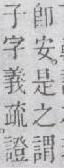 卽安。是之謂
子字義疏證